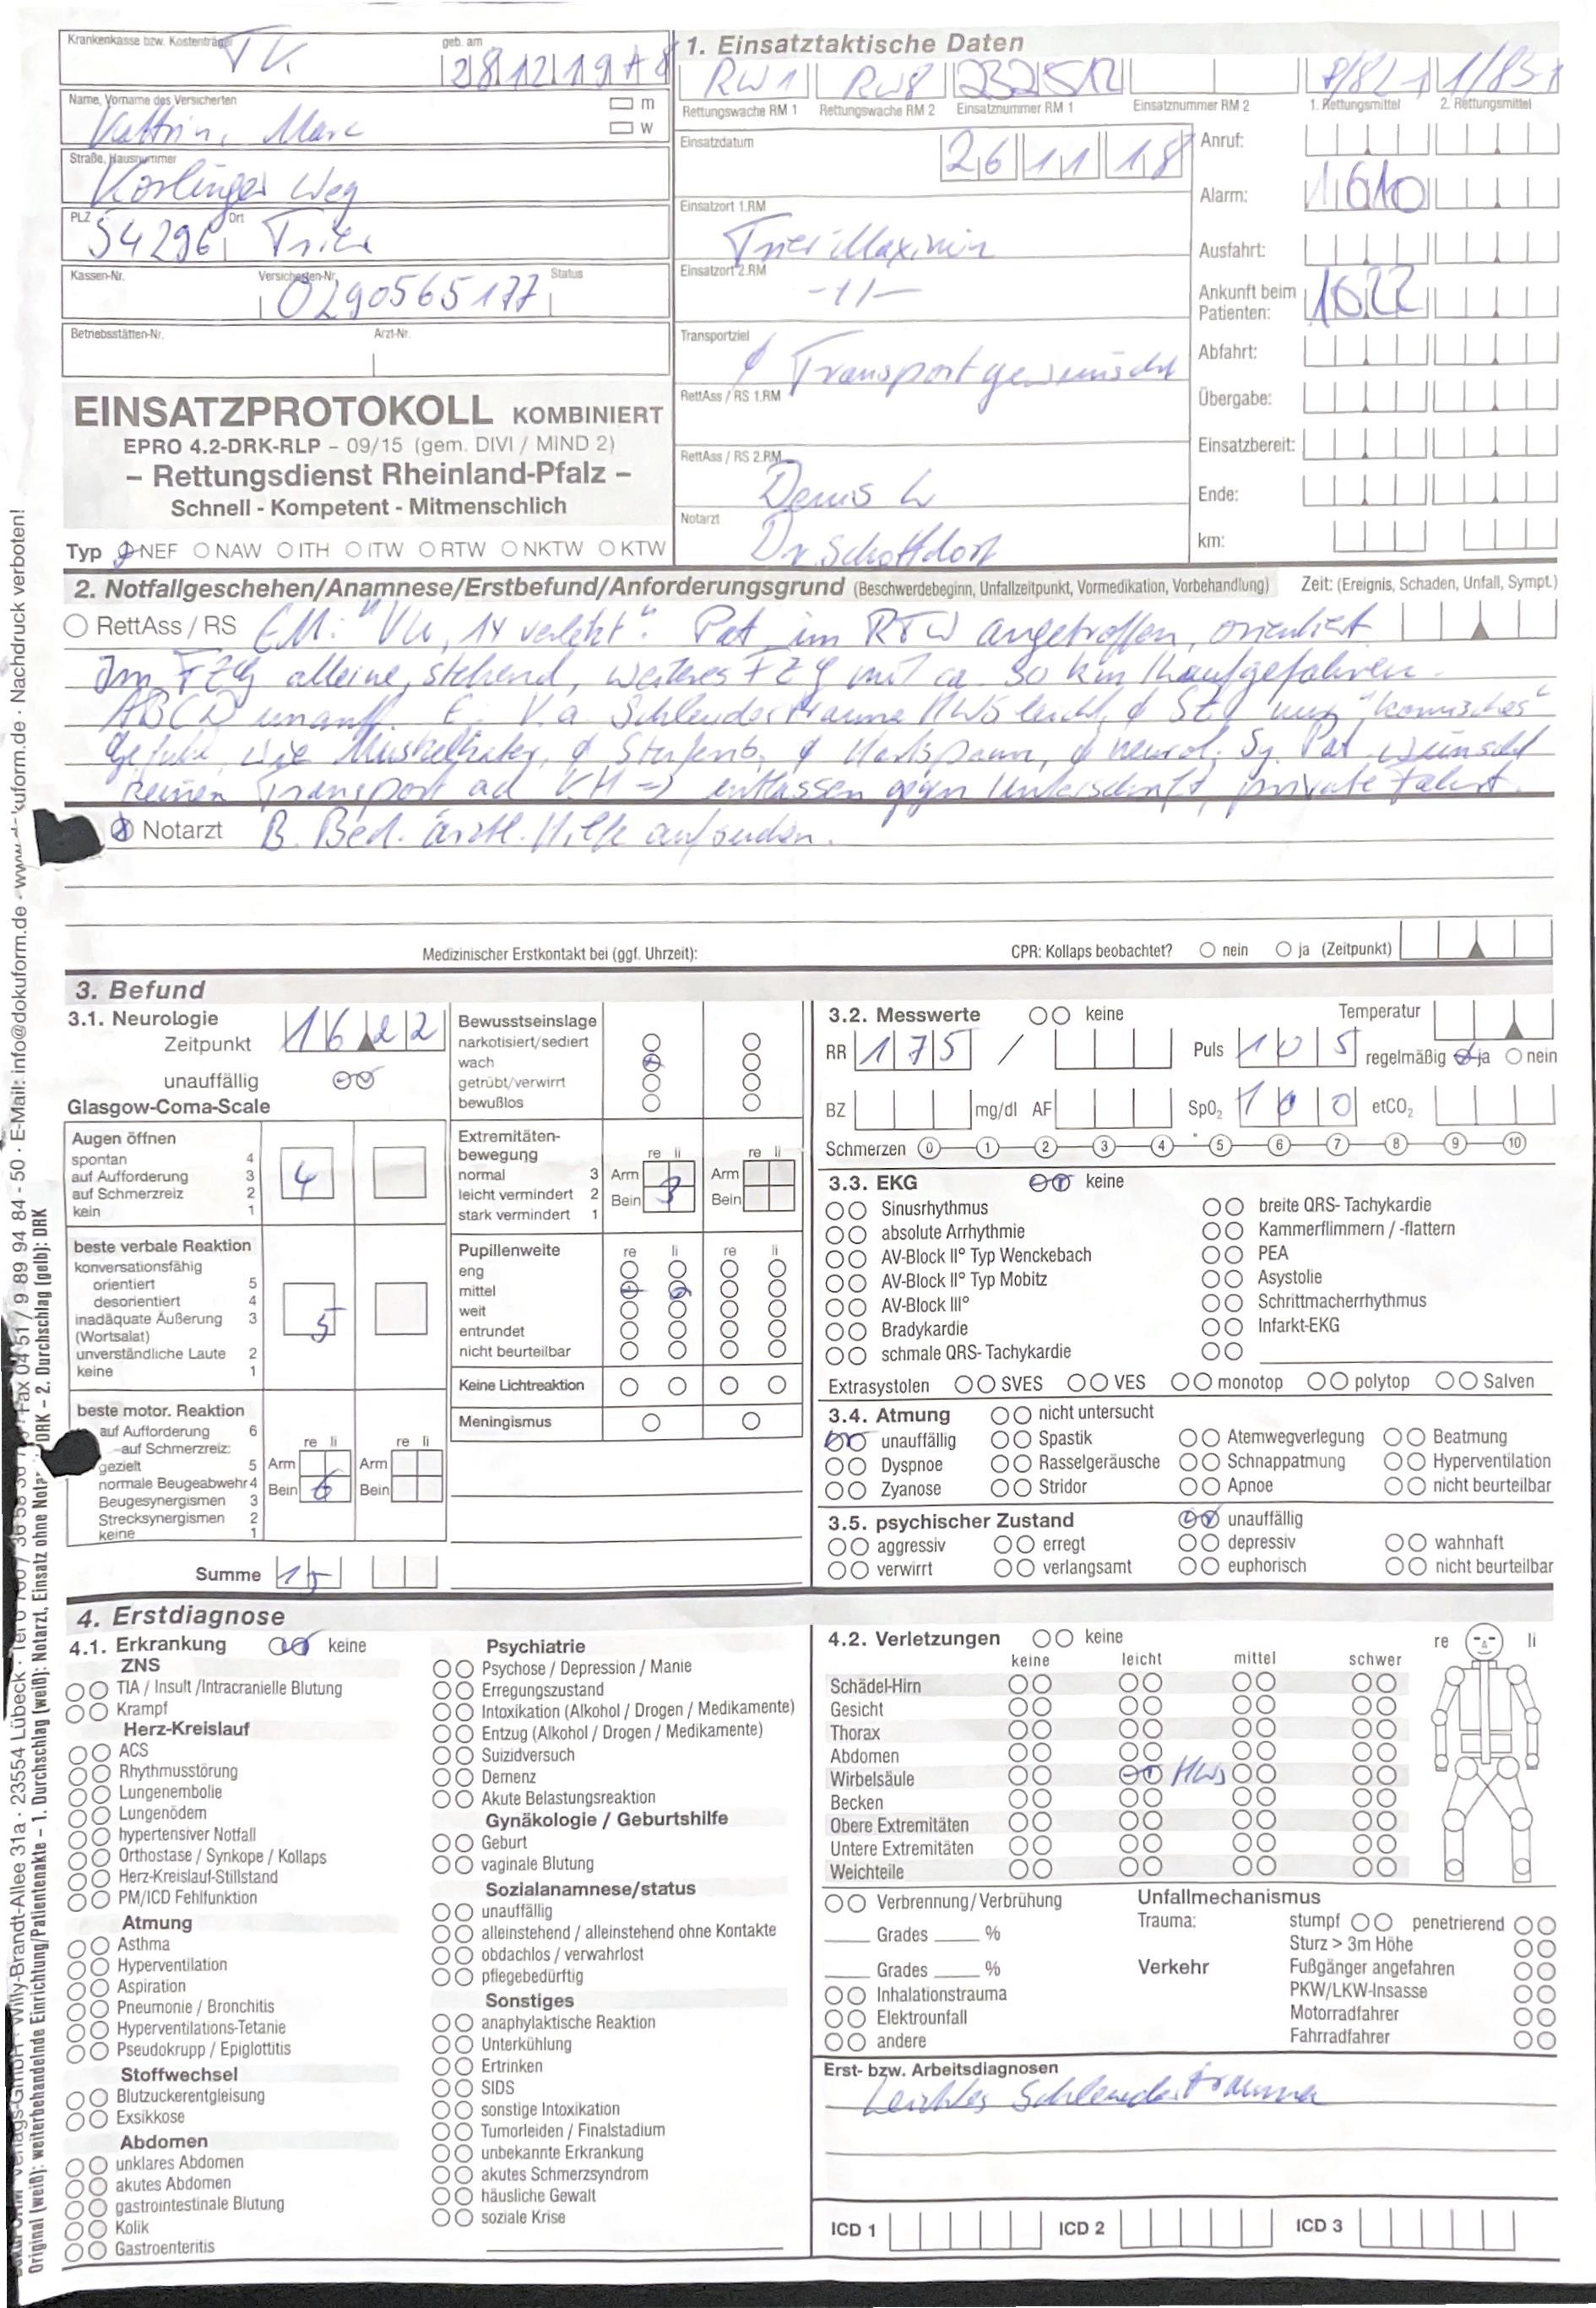 Krankenkasse bzw. Kostenträger
TK
geb. am
28 12 19 8
Name, Vorname des Versicherten
m
w
Marc
Straße, Hausnummer
Weg
PLZ
Ort
54296 Trier
Kassen-Nr.
Versicherten-Nr.
Status
0290565177
Betriebsstätten-Nr.
Arzt-Nr.
EINSATZPROTOKOLL KOMBINIERT
EPRO 4.2-DRK-RLP – 09/15 (gem. DIVI / MIND 2)
– Rettungsdienst Rheinland-Pfalz –
Schnell - Kompetent - Mitmenschlich
Typ NEF NAW ITH ITW RTW NKTW KTW
1. Einsatztaktische Daten
RW1 RW8 232512
Rettungswache RM 1 Rettungswache RM 2 Einsatznummer RM 1 Einsatznummer RM 2 1. Rettungsmittel 2. Rettungsmittel
Einsatzdatum
26 11 18
Einsatzort 1.RM
Trier Maximin
Einsatzort 2.RM
-11-
Transportziel
∅ Transport gewünscht
RettAss / RS 1.RM
RettAss / RS 2.RM
Denis
Notarzt
Dr. Schottdorf
Anruf:
Alarm: 1610
Ausfahrt:
Ankunft beim Patienten: 1622
Abfahrt:
Übergabe:
Einsatzbereit:
Ende:
km:
2. Notfallgeschehen/Anamnese/Erstbefund/Anforderungsgrund (Beschwerdebeginn, Unfallzeitpunkt, Vormedikation, Vorbehandlung) Zeit: (Ereignis, Schaden, Unfall, Sympt.)
RettAss / RS EM: "VU, 1x verletzt". Pat. im RTW angetroffen, orientiert
Im FZG alleine, stehend, weiteres FZG mit ca. 30 km/h aufgefahren.
ABCD unauff. E: V.a. Schleudertrauma HWS leicht, ∅ nur "komisches"
Gefühl, wie Muskelkater, ∅ ∅ Hartspann, ∅ neurol. Sy. Pat. wünscht
keinen Transport ad KH => entlassen gegen Unterschrift, private Fahrt.
Notarzt B. Bed. ärztl. Hilfe aufsuchen.
Medizinischer Erstkontakt bei (ggf. Uhrzeit):
CPR: Kollaps beobachtet? nein ja (Zeitpunkt)
3. Befund
3.1. Neurologie
Zeitpunkt 16 22
unauffällig
Glasgow-Coma-Scale
Augen öffnen
spontan 4
auf Aufforderung 3
auf Schmerzreiz 2
kein 1
4
beste verbale Reaktion
konversationsfähig
orientiert 5
desorientiert 4
inadäquate Äußerung 3
(Wortsalat)
unverständliche Laute 2
keine 1
5
beste motor. Reaktion
auf Aufforderung 6
auf Schmerzreiz:
gezielt 5
normale Beugeabwehr 4
Beugesynergismen 3
Strecksynergismen 2
keine 1
re li re li
Arm Arm
Bein 6 Bein
Summe 15
Bewusstseinslage
narkotisiert/sediert
wach
getrübt/verwirrt
bewußlos
Extremitäten-
bewegung
re li re li
normal 3 Arm Arm
leicht vermindert 2 Bein 3 Bein
stark vermindert 1
Pupillenweite
re li re li
eng
mittel
weit
entrundet
nicht beurteilbar
Keine Lichtreaktion
Meningismus
3.2. Messwerte keine Temperatur
RR 175 / Puls 105 regelmäßig ja nein
BZ mg/dl AF SpO2 100 etCO2
Schmerzen 0 1 2 3 4 5 6 7 8 9 10
3.3. EKG keine
Sinusrhythmus breite QRS- Tachykardie
absolute Arrhythmie Kammerflimmern / -flattern
AV-Block II° Typ Wenckebach PEA
AV-Block II° Typ Mobitz Asystolie
AV-Block III° Schrittmacherrhythmus
Bradykardie Infarkt-EKG
schmale QRS- Tachykardie
Extrasystolen SVES VES monotop polytop Salven
3.4. Atmung nicht untersucht
unauffällig Spastik Atemwegverlegung Beatmung
Dyspnoe Rasselgeräusche Schnappatmung Hyperventilation
Zyanose Stridor Apnoe nicht beurteilbar
3.5. psychischer Zustand unauffällig
aggressiv erregt depressiv wahnhaft
verwirrt verlangsamt euphorisch nicht beurteilbar
4. Erstdiagnose
4.1. Erkrankung keine
ZNS
TIA / Insult /Intracranielle Blutung
Krampf
Herz-Kreislauf
ACS
Rhythmusstörung
Lungenembolie
Lungenödem
hypertensiver Notfall
Orthostase / Synkope / Kollaps
Herz-Kreislauf-Stillstand
PM/ICD Fehlfunktion
Atmung
Asthma
Hyperventilation
Aspiration
Pneumonie / Bronchitis
Hyperventilations-Tetanie
Pseudokrupp / Epiglottitis
Stoffwechsel
Blutzuckerentgleisung
Exsikkose
Abdomen
unklares Abdomen
akutes Abdomen
gastrointestinale Blutung
Kolik
Gastroenteritis
Psychiatrie
Psychose / Depression / Manie
Erregungszustand
Intoxikation (Alkohol / Drogen / Medikamente)
Entzug (Alkohol / Drogen / Medikamente)
Suizidversuch
Demenz
Akute Belastungsreaktion
Gynäkologie / Geburtshilfe
Geburt
vaginale Blutung
Sozialanamnese/status
unauffällig
alleinstehend / alleinstehend ohne Kontakte
obdachlos / verwahrlost
pflegebedürftig
Sonstiges
anaphylaktische Reaktion
Unterkühlung
Ertrinken
SIDS
sonstige Intoxikation
Tumorleiden / Finalstadium
unbekannte Erkrankung
akutes Schmerzsyndrom
häusliche Gewalt
soziale Krise
4.2. Verletzungen keine
keine leicht mittel schwer
Schädel-Hirn
Gesicht
Thorax
Abdomen
Wirbelsäule HWS
Becken
Obere Extremitäten
Untere Extremitäten
Weichteile
re li
Verbrennung/Verbrühung
Grades %
Grades %
Inhalationstrauma
Elektrounfall
andere
Unfallmechanismus
Trauma: stumpf penetrierend
Sturz > 3m Höhe
Verkehr Fußgänger angefahren
PKW/LKW-Insasse
Motorradfahrer
Fahrradfahrer
Erst- bzw. Arbeitsdiagnosen
Leichtes Schleudertrauma
ICD 1 ICD 2 ICD 3
Willy-Brandt-Allee 31a · 23554 Lübeck · 9 89 94 84 - 50 · E-Mail: info@dokuform.de · Nachdruck verboten!
Original (weiß): weiterbehandelnde Einrichtung/Patientenakte – 1. Durchschlag (weiß): Notarzt, Einsatz ohne DRK – 2. Durchschlag (gelb): DRK